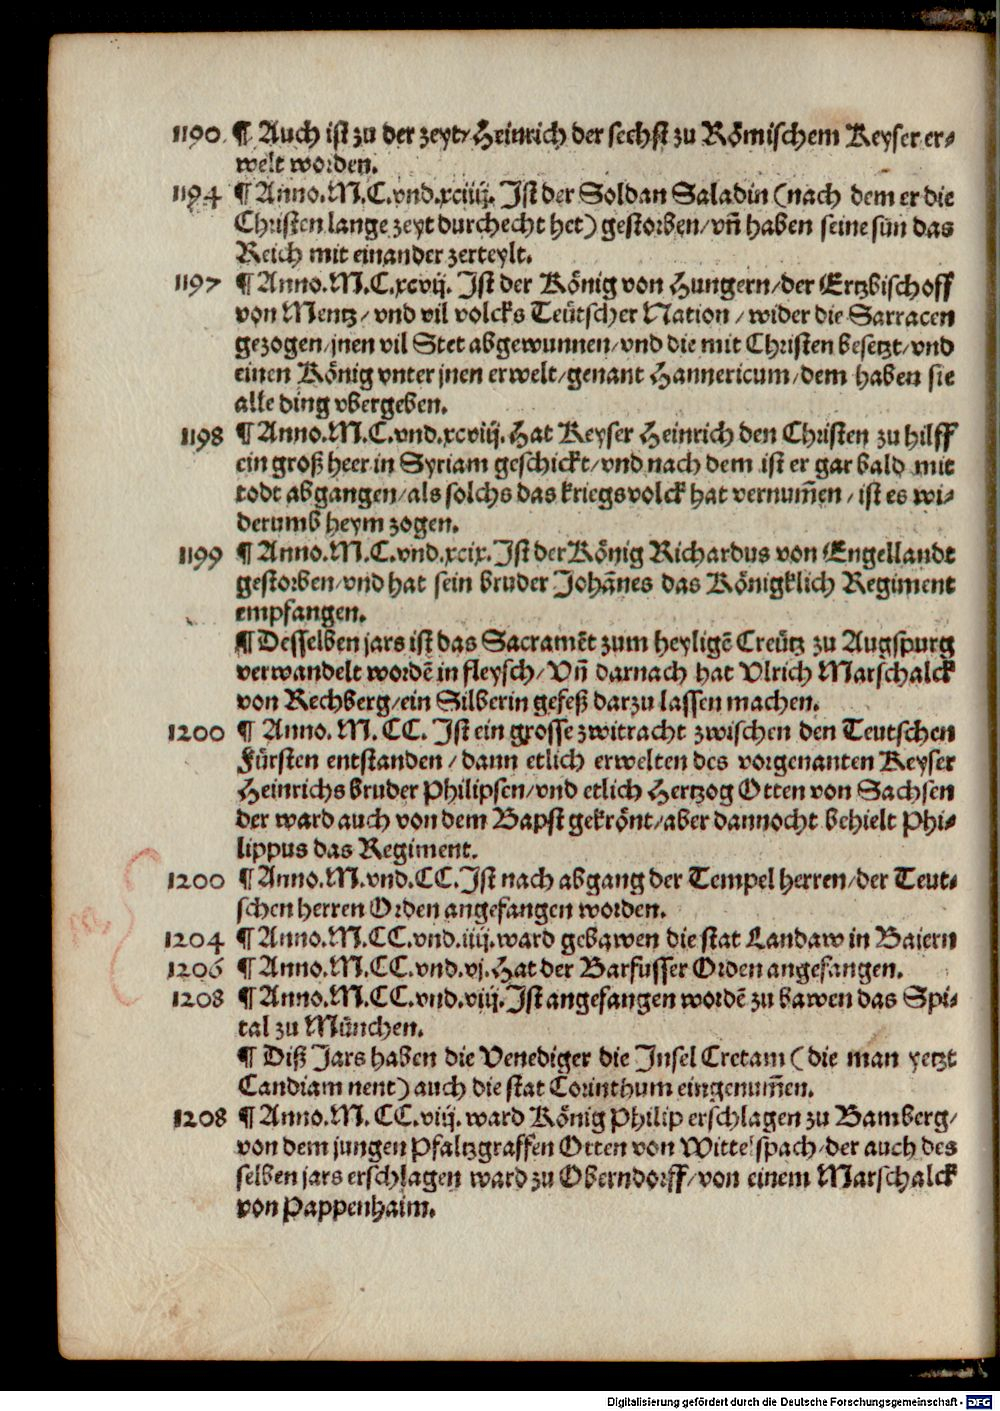 1190 ¶ Auch ist zu der zeyt/ Heinrich der sechst zu Römischem Keyser er-
welt worden.
1194 ¶ Anno. M. C. vnd. xciiij. Ist der Soldan Saladin (nach dem er die
Christen lange zeyt durchecht het) gestorben/ vn̄ haben seine sün das
Reich mit einander zerteylt.
1197 ¶ Anno. M. C. xcvij. Ist der König von Hungern/ der Ertzbischoff
von Mentz/ vnd vil volcks Teütscher Nation/ wider die Sarracen
gezogen/ jnen vil Stet abgewunnen/ vnd die mit Christen besetzt/ vnd
einen König vnter jnen erwelt/ genant Hannericum/ dem haben sie
alle ding vbergeben.
1198 ¶ Anno. M. C. vnd. xcviij. Hat Keyser Heinrich den Christen zu hilff
ein groß heer in Syriam geschickt/ vnd nach dem ist er gar bald mit
todt abgangen/ als solchs das kriegsvolck hat vernum̄en/ ist es wi-
derumb heym zogen.
1199 ¶ Anno. M. C. vnd. xcix. Ist der König Richardus von Engellandt
gestorben/ vnd hat sein bruder Johān̄es das Königklich Regiment
empfangen.
¶ Desselben jars ist das Sacramēt zum heyligē Creütz zu Augspurg
verwandelt wordē in fleysch/ Vn̄ darnach hat Vlrich Marschalck
von Rechberg/ ein Silberin gefeß darzu lassen machen.
1200 ¶ Anno. M. CC. Ist ein grosse zwitracht zwischen den Teutschen
Fürsten entstanden/ dann etlich erwelten des vorgenanten Keyser
Heinrichs bruder Philipsen/ vnd etlich Hertzog Otten von Sachsen
der ward auch von dem Bapst gekrönt/ aber dannocht behielt Phi-
lippus das Regiment.
1200 ¶ Anno. M. vnd. CC. Ist nach abgang der Tempel herren/ der Teut-
schen herren Orden angefangen worden.
1204 ¶ Anno. M. CC. vnd. iiij. ward gebawen die stat Landaw in Baiern
1206 ¶ Anno. M. CC. vnd. vj. Hat der Barfusser Orden angefangen.
1208 ¶ Anno. M. CC. vnd. viij. Ist angefangen wordē zu bawen das Spi-
tal zu München.
¶ Diß Jars haben die Venediger die Insel Cretam (die man yetzt
Candiam nent) auch die stat Corinthum eingenum̄en.
1208 ¶ Anno. M. CC. viij. ward König Philip erschlagen zu Bamberg/
von dem jungen Pfaltzgraffen Otten von Wittelspach/ der auch des
selben jars erschlagen ward zu Oberndorff/ von einem Marschalck
von Pappenhaim.
Digitalisierung gefördert durch die Deutsche Forschungsgemeinschaft - DFG